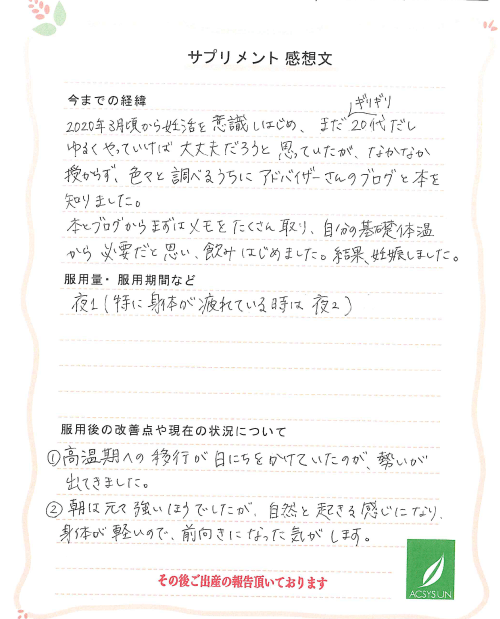 サプリメント感想文
今までの経緯
ギリギリ
2020年3月頃から妊活を意識しはじめ、まだ20代だし
ゆるくやっていけば大丈夫だろうと思っていたが、なかなか
授からず、色々と調べるうちにアドバイザーさんのブログと本を
知りました。
本とブログからまずはメモをたくさん取り、自分の基礎体温
から必要だと思い、飲みはじめました。結果、妊娠しました。
服用量・服用期間など
夜1(特に身体が疲れている時は夜2)
服用後の改善点や現在の状況について
①高温期への移行が日にちをかけていたのが、勢いが
出てきました。
②朝は元々強いほうでしたが、自然と起きる感じになり、
身体が軽いので、前向きになった気がします。
その後ご出産の報告頂いております
ACSYSUN